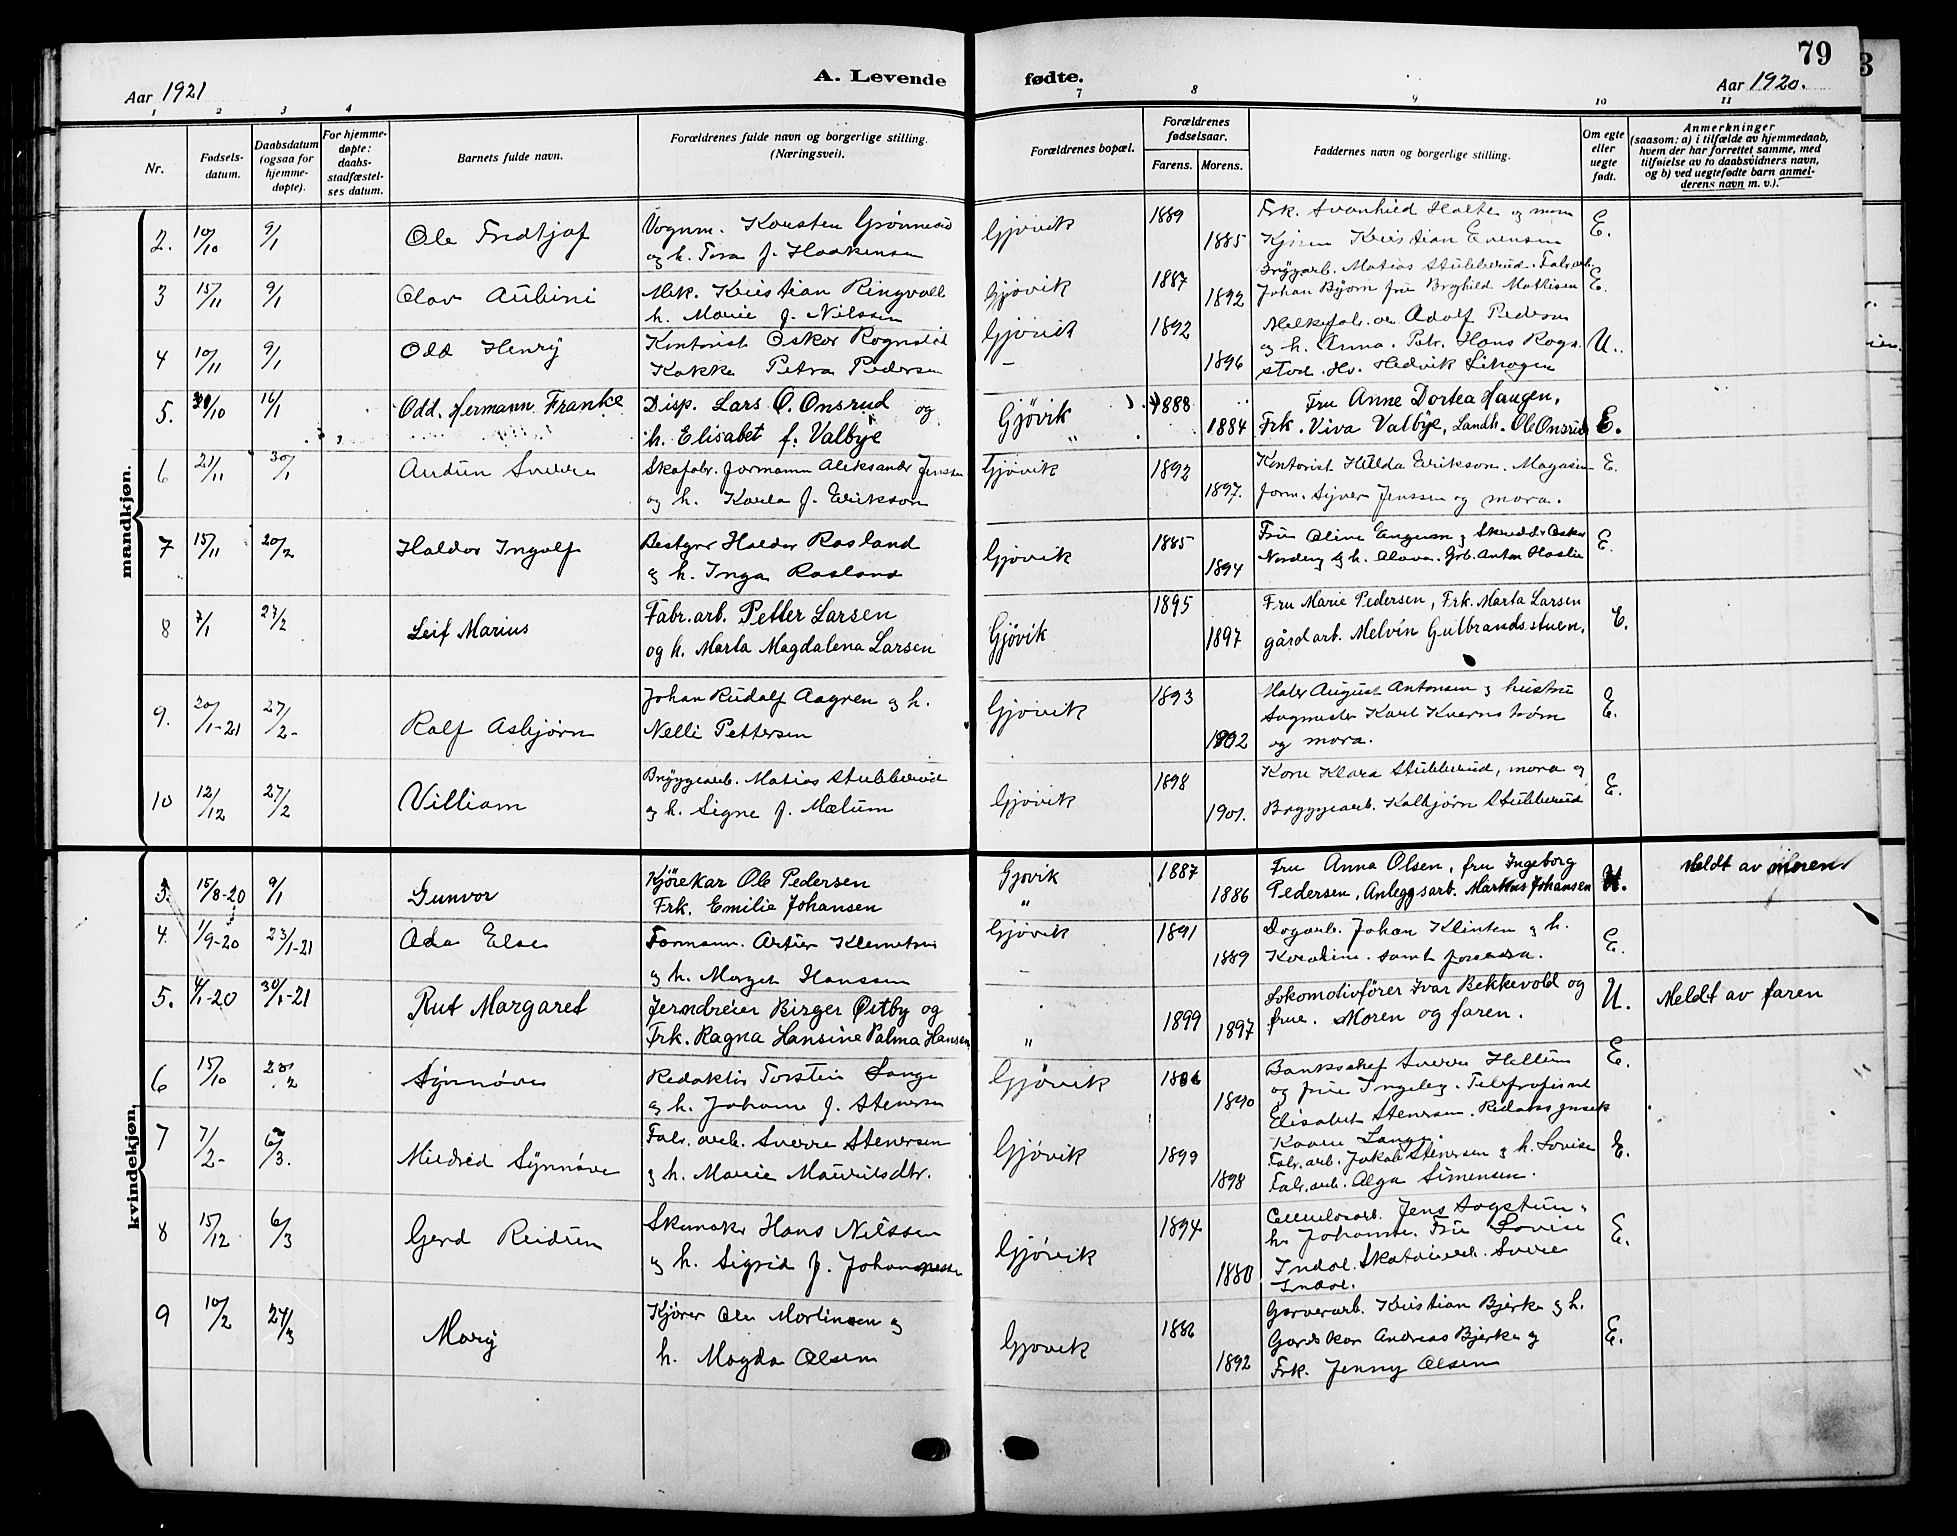 79
A. Levende fødte.
Aar 1921
Aar 1920.
1 2 3 4 7 8 9 10 11
Nr.
Fødsels-
datum.
Daabsdatum
(ogsaa for
hjemme-
døpte).
For hjemme-
døpte:
daabs-
stadfæstel-
ses datum.
Barnets fulde navn.
Forældrenes fulde navn og borgerlige stilling.
(Næringsvei).
Forældrenes bopæl.
Forældrenes
fødselsaar.
Farens. Morens.
Faddernes navn og borgerlige stilling.
Om egte
eller
uegte
født.
Anmerkninger
(saasom: a) i tilfælde av hjemmedaab,
hvem der har forrettet samme, med
tilføielse av to daabsvidners navn,
og b) ved uegtefødte barn anmel-
derens navn m. v.).
mandkjøn.
2. 10/10 9/1 Ole Fridtjof Vognm. Karsten Grønneød Gjøvik 1889 Frk. Svanhild Holte og mora E.
og h. Tora f. Haakensen 1885 Kjører Kristian Evensen
Bryggarb. Matias Stubberud. Fabr.arb.
3 15/11 9/1 Olav Aubini Mek. Kristian Ringvoll Gjøvik 1887 Johan Bjørn frue Borghild Mathisen E.
h. Marie f. Nilssen 1892
4 10/11 9/1 Odd Henry Kontorist Oskar Rognstad Gjøvik 1892 Melkefabr.arb Adolf Pedersen U.
Kokke Petra Pedersen – 1896 og h. Anna. Fabr. Hans Rogn-
stad. Hv. Hedvik Lihagen
5. 30/10 16/1 Odd. Hermann Franke Disp. Lars O. Onsrud og Gjøvik 1888 Fru Anne Dortea Haugen,
h. Elisabet f. Valbye " 1884 Frk. Viva Valbye, Landh. Ole Onsrud E.
6 21/11 30/1 Audun Sverre Skofabr. formann Aleksander Jenssen Gjøvik 1892 Kontorist Hilda Erikson. Magasin E.
og h. Karla f. Erikson 1897. form. Syver Jenssen og mora.
7 15/11 20/2 Haldor Ingolf Bestyrer Haldor Rosland Gjøvik 1885 Fru Oline Engesen og Skredd. Oskar E.
og h. Inga Rosland 1894 Norderg og h. Olava. Grb. Anton Haslie
8 7/1 27/2 Leif Marius Fabr. arb. Petter Larsen Gjøvik 1895 Fru Marie Pedersen, Frk. Marta Larsen E.
og h. Marta Magdalena Larsen 1897 gårdarb. Melvin Gulbrandsstuen.
9. 20/1-21 27/2- Rolf Asbjørn Johan Rudolf Aagren og h. Gjøvik 1893 Maler August Antonsen og hustru E.
Nelli Pettersen 1902 Sagmester Karl Kvernstrøm
og mora.
10 12/12 27/2 Villiam Bryggearb. Matias Stubberud Gjøvik 1898 Kone Klara Stubberud, mora og E.
og h. Signe f. Mælum 1901. Bryggearb. Kolbjørn Stubberud
kvindekjøn.
3. 15/8-20 9/1 Gunvor Kjørekar Ole Pedersen Gjøvik 1887 Fru Anna Olsen, fru Ingeborg Meldt av moren
Frk. Emilie Johansen " 1886 Pedersen, Anleggsarb. Martins Johansen U.
4. 1/9-20 23/1-21 Ada Else Formann. Artur Klemetsen Gjøvik 1891 Dagarb. Johan Klinten og h. E.
og h. Margit Hanssen – 1889 Karoline. samt foreldra.
5. 4/1-20 30/1-21 Rut Margaret Jerndreier Birger Østby og Lokomotivfører Ivar Bekkevold og U. Meldt av faren
Frk. Ragna Hansine Palma Hansen " 1899 1897 frue. Moren og faren.
6 15/10 20/2 Synnøve Redaktør Torstein Lange Gjøvik 1886 Banksschef Sverre Hellum E.
og h. Johanne f. Stenersen 1890 og frue Ingeborg. Telegrafist
Elisabet Stenersen. Redaksjonssek
Kaare Lange.
7 7/2- 6/3. Mildred Synnøve Fabr. arb. Sverre Stenersen Gjøvik 1899 Fabr. arb. Jakob Stenersen og h. Lovise E.
og h. Marie Mauritsdtr. 1898 Fabr. arb. Olga Simensen.
8 15/12 6/3 Gerd Reidun Skomaker Hans Nilssen Gjøvik 1894 Cellulosarb. Jens Sogstuen og E.
og h. Sigrid f. Johannessen 1880 h. Johanne. Fru Lovise
Indal. Skotøiarb. Sverre
Indal.
9 10/2 24/3 Mary Kjører Ole Martinsen og Gjøvik 1886 Garverarb. Kristian Bjerke og h. E.
h. Magda Olsen 1892 Gardskar Andreas Bjerke og
Frk. Jenny Olsen